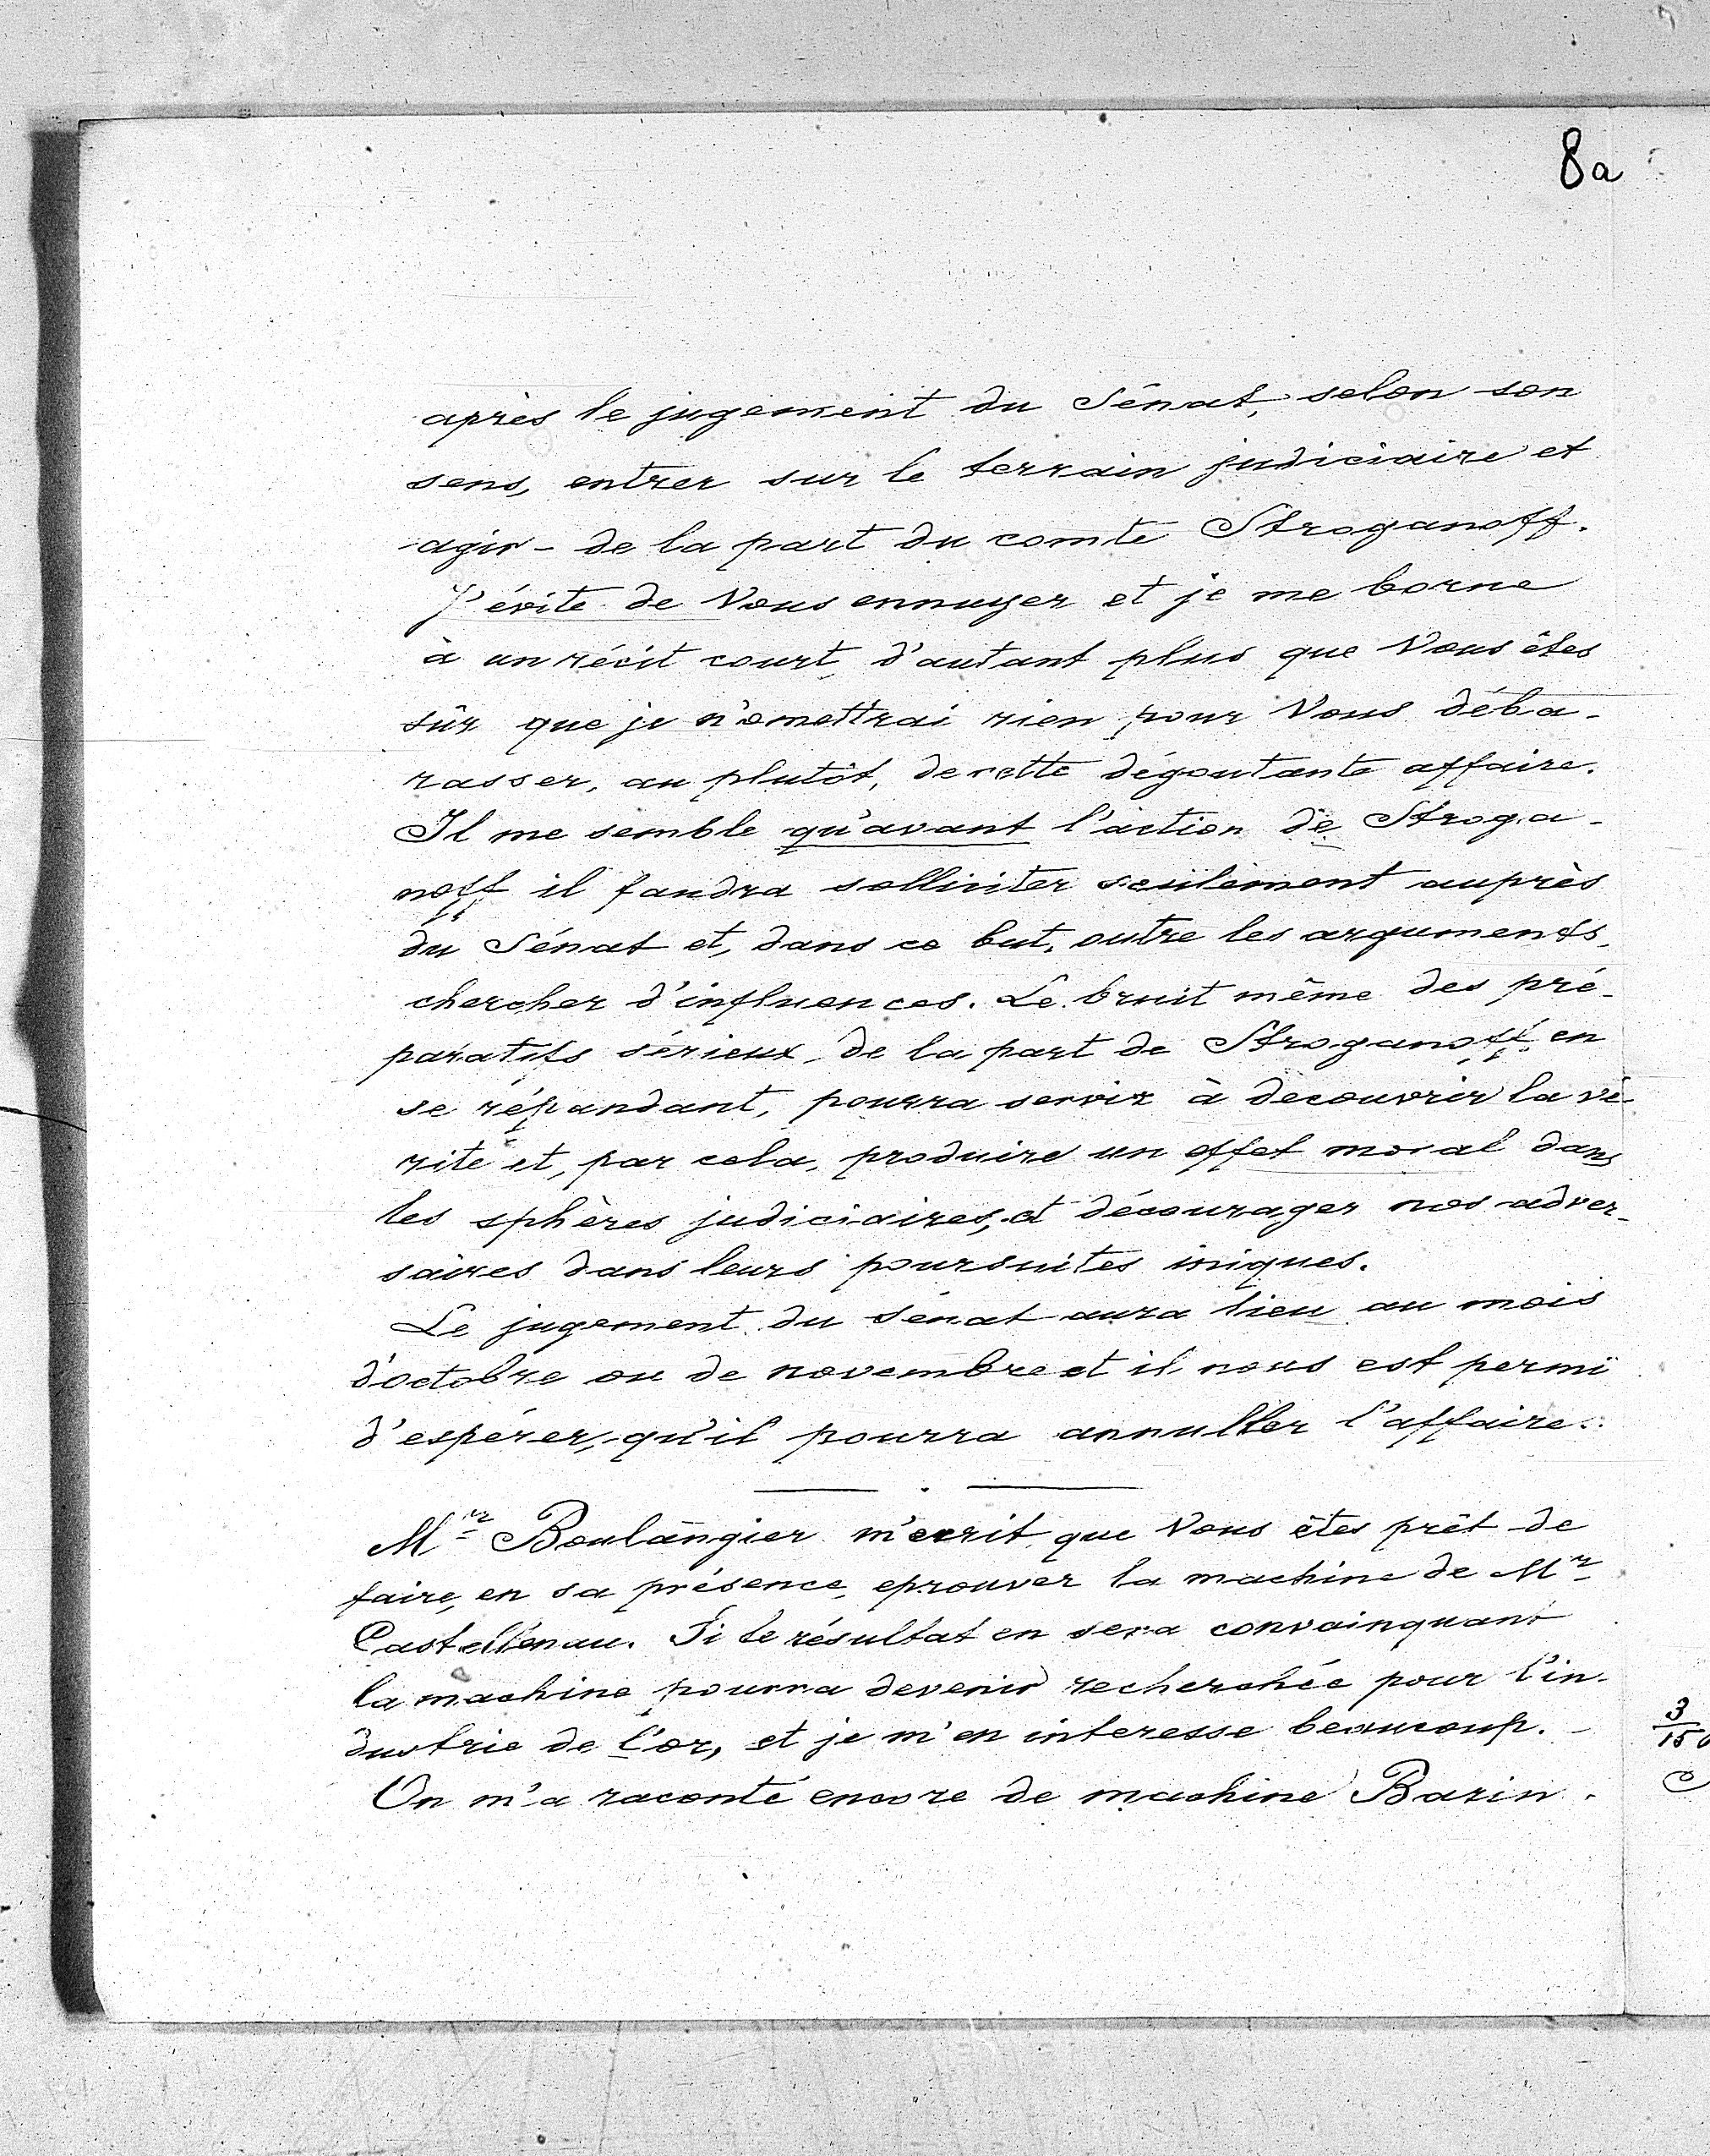 8a
après le jugement du Sénat, selon son
sens, entrer sur le terrain judiciaire et
agir - de la part du comte Stroganoff.
J'évite de Vous ennuyer et je me borne
à un récit court, d'autant plus que Vous êtes
sûr que je n'omettrai rien pour Vous déba-
rasser, au plutôt, de cette dégoutante affaire.
Il me semble qu'avant l'action de Stroga-
noff il faudra solliciter seulement auprès
du Sénat et, dans ce but, outre les arguments,
chercher d'influences. Le bruit même des pré-
paratifs sérieux, de la part de Stroganoff, en
se répandant, pourra servir à découvrir la vé-
rité et, par cela, produire un effet moral dans
les sphères judiciaires, et décourager nos adver-
saires dans leurs poursuites iniques.
Le jugement du Sénat aura lieu au mois
d'octobre ou de novembre et il nous est permi
d'espérer, qu'il pourra annuller l'affaire.
Mr Boulangier m'ecrit que Vous êtes prêt de
faire, en sa présence, eprouver la machine de Mr
Castellenau. Si le résultat en sera convainquant
la machine pourra devenir recherchée pour l'in-
dustrie de l'or, et je m'en interesse beaucoup. -
On m'a raconté encore de machine Bazin.
3
15